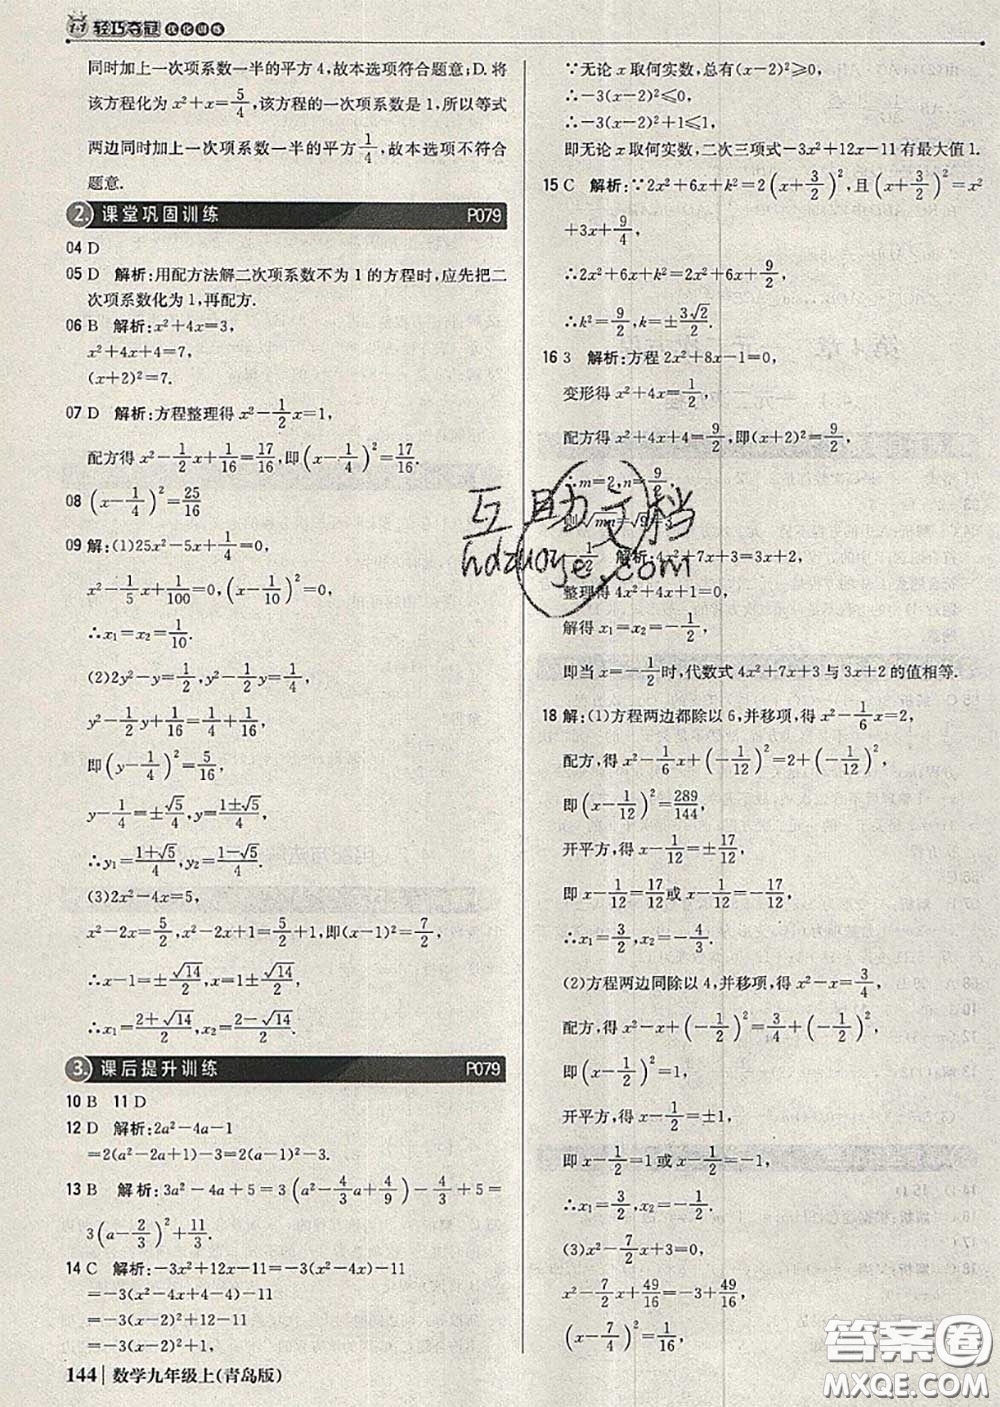 1+1 轻巧夺冠 优化训练
同时加上一次项系数一半的平方 4,故本选项符合题意;D. 将
该方程化为 x²+x=5/4,该方程的一次项系数是 1,所以等式
两边同时加上一次项系数一半的平方 1/4,故本选项不符合
题意.
2. 课堂巩固训练 P079
04 D
05 D 解析:用配方法解二次项系数不为 1 的方程时,应先把二
次项系数化为 1,再配方.
06 B 解析:x²+4x=3,
x²+4x+4=7,
(x+2)²=7.
07 D 解析:方程整理得 x²-1/2x=1,
配方得 x²-1/2x+1/16=17/16,即(x-1/4)²=17/16.
08 (x-1/4)²=25/16
09 解:(1)25x²-5x+1/4=0,
x²-1/5x+1/100=0,(x-1/10)²=0,
∴x₁=x₂=1/10.
(2)2y²-y=1/2,y²-1/2y=1/4,
y²-1/2y+1/16=1/4+1/16,
即(y-1/4)²=5/16,
y-1/4=±√5/4,y=(1±√5)/4,
∴y₁=(1+√5)/4,y₂=(1-√5)/4.
(3)2x²-4x=5,
x²-2x=5/2,x²-2x+1=5/2+1,即(x-1)²=7/2,
∴x-1=±√14/2,
∴x₁=(2+√14)/2,x₂=(2-√14)/2.
3. 课后提升训练 P079
10 B 11 D
12 D 解析:2a²-4a-1
=2(a²-2a+1)-3=2(a-1)²-3.
13 B 解析:3a²-4a+5=3(a²-4/3a+4/9)-4/3+5=
3(a-2/3)²+11/3.
14 C 解析:-3x²+12x-11=-3(x²-4x)-11
=-3(x-2)²+12-11
=-3(x-2)²+1,
∵无论 x 取何实数,总有(x-2)²≥0,
∴-3(x-2)²≤0,
∴-3(x-2)²+1≤1,
即无论 x 取何实数,二次三项式-3x²+12x-11有最大值 1.
15 C 解析:∵2x²+6x+k²=2(x+3/2)²,且(x+3/2)²=x²
+3x+9/4,
∴2x²+6x+k²=2x²+6x+9/2,
∴k²=9/2,k=±3√2/2.
16 3 解析:方程 2x²+8x-1=0,
变形得 x²+4x=1/2,
配方得 x²+4x+4=9/2,即(x+2)²=9/2,
∴m=2,n=9/2,
则√mn=√9=3.
-1/2 解析:4x²+7x+3=3x+2,
整理得 4x²+4x+1=0,
解得 x₁=x₂=-1/2,
即当 x=-1/2时,代数式 4x²+7x+3 与 3x+2 的值相等.
18 解:(1)方程两边都除以 6,并移项,得 x²-1/6x=2,
配方,得 x²-1/6x+(-1/12)²=2+(-1/12)²,
即(x-1/12)²=289/144,
开平方,得 x-1/12=±17/12,
即 x-1/12=17/12或 x-1/12=-17/12,
∴x₁=3/2,x₂=-4/3.
(2)方程两边同除以 4,并移项,得 x²-x=3/4,
配方,得 x²-x+(-1/2)²=3/4+(-1/2)²,
即(x-1/2)²=1,
开平方,得 x-1/2=±1,
即 x-1/2=1或 x-1/2=-1,
∴x₁=3/2,x₂=-1/2.
(3)x²-7/2x+3=0,
x²-7/2x+49/16=-3+49/16,
(x-7/4)²=1/16,
144 数学九年级上(青岛版)
互助文档
hdzuoye.com
答案圈
MXQE.COM